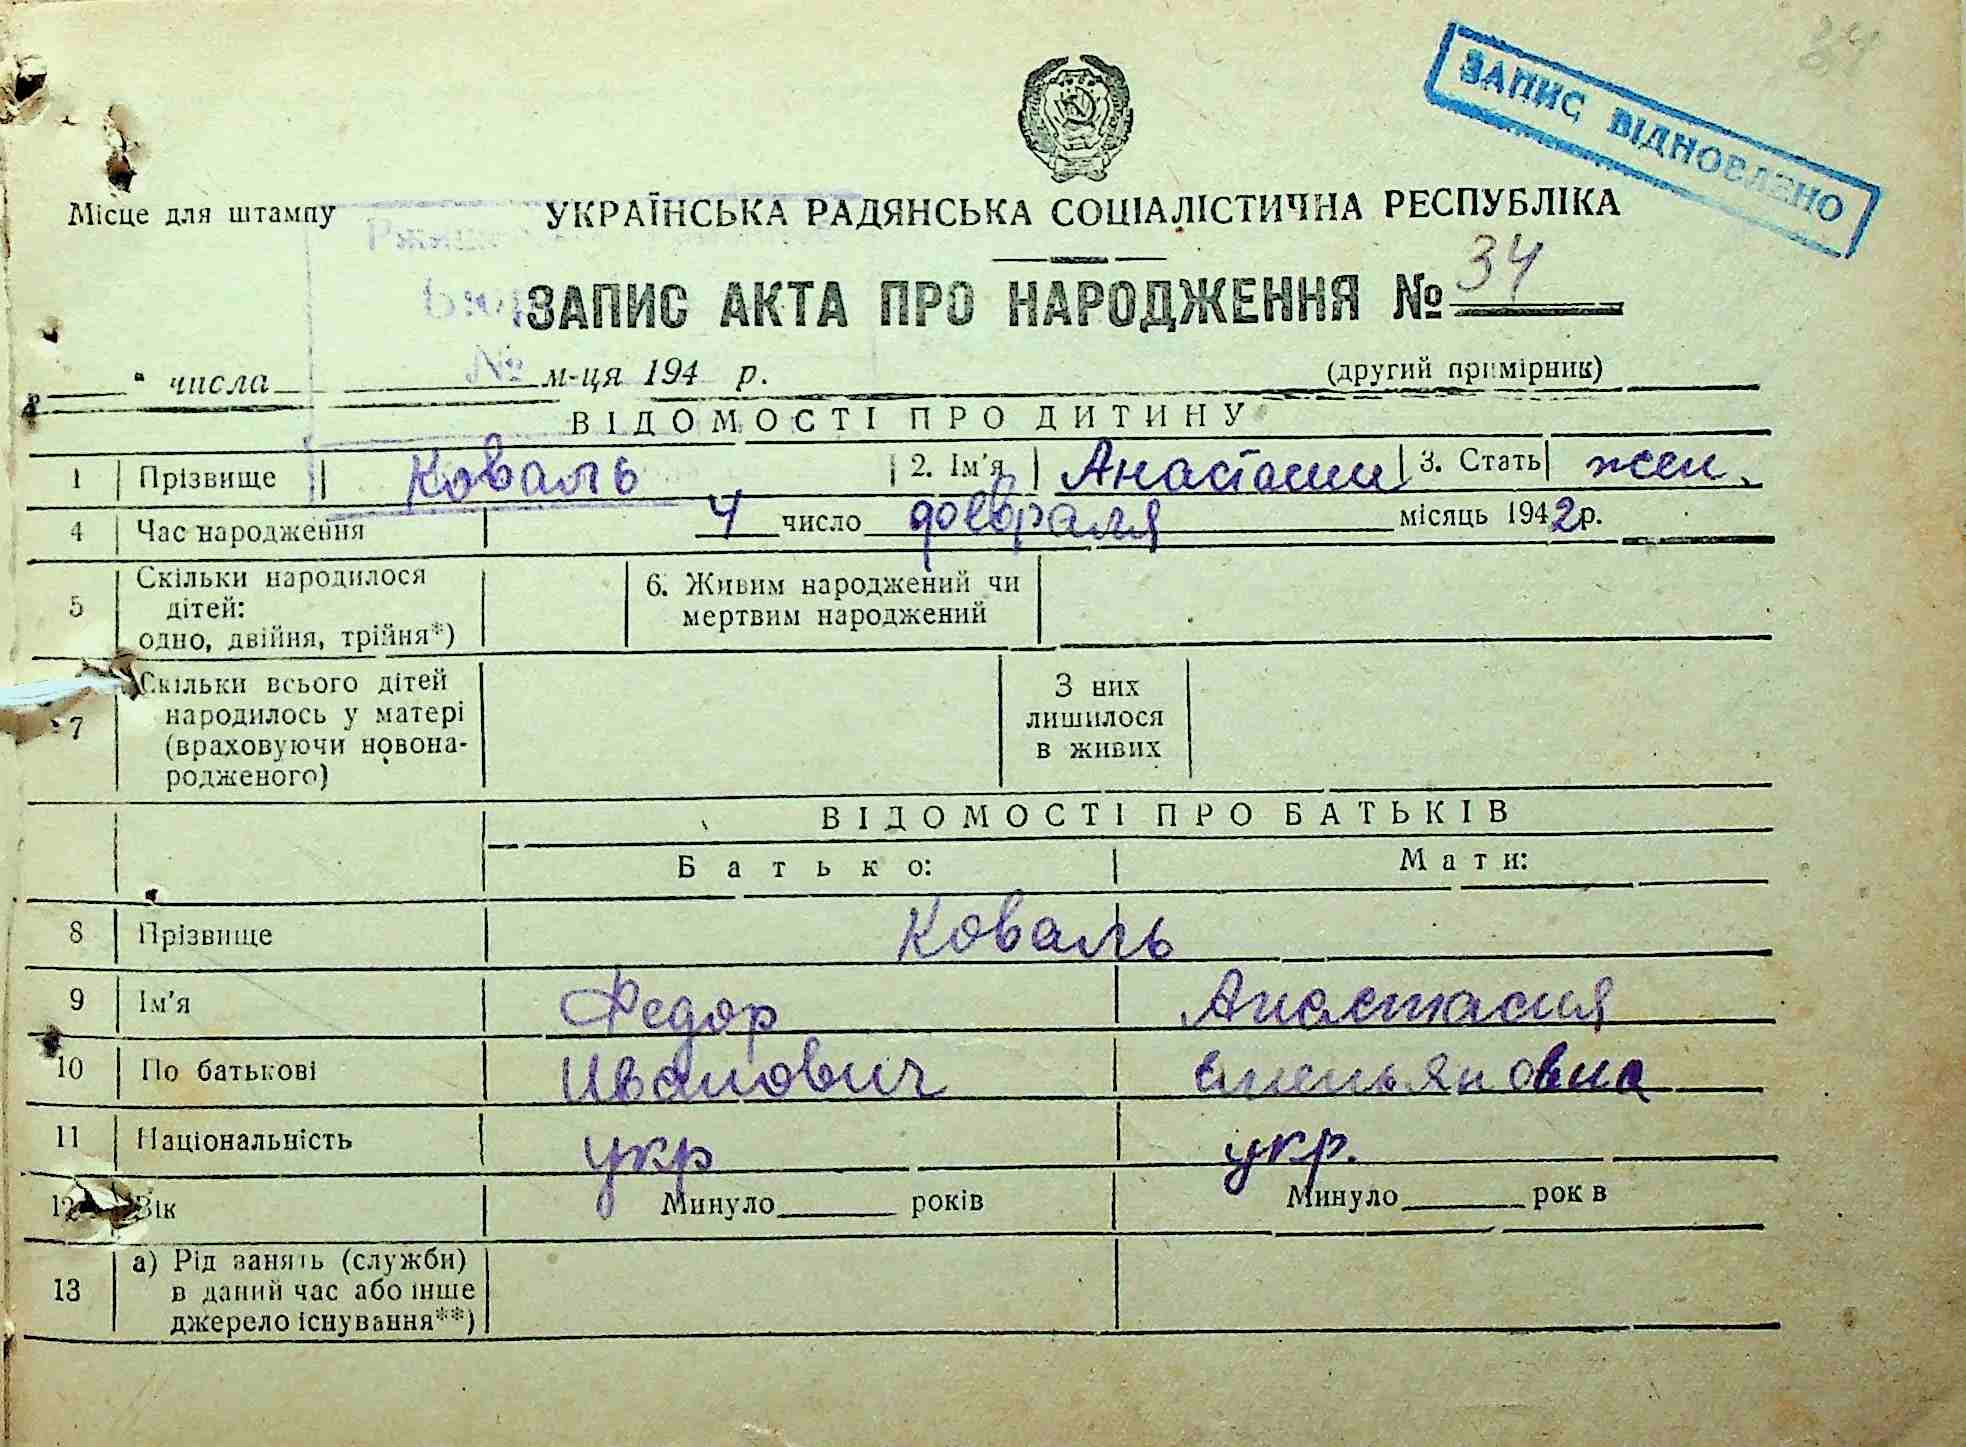 34
ЗАПИС ВІДНОВЛЕНО
Місце для штампу
УКРАЇНСЬКА РАДЯНСЬКА СОЦІАЛІСТИЧНА РЕСПУБЛІКА
ЗАПИС АКТА ПРО НАРОДЖЕННЯ № 34
№
" числа м-ця 194 р. (другий примірник)
ВІДОМОСТІ ПРО ДИТИНУ
1 Прізвище Коваль 2. Ім'я 3. Стать жен.
4 Час народження 4 число февраля місяць 1942р.
5 Скільки народилося дітей: одно, двійня, трійня*) 6. Живим народжений чи мертвим народжений
7 Скільки всього дітей народилось у матері (враховуючи новонародженого) З них лишилося в живих
ВІДОМОСТІ ПРО БАТЬКІВ
Батько: Мати:
8 Прізвище Коваль
9 Ім'я Федор Анастасия
10 По батькові Иванович Емельяновна
11 Національність укр укр.
12 Вік Минуло років Минуло рок в
13 а) Рід занять (служби) в даний час або інше джерело існування**)